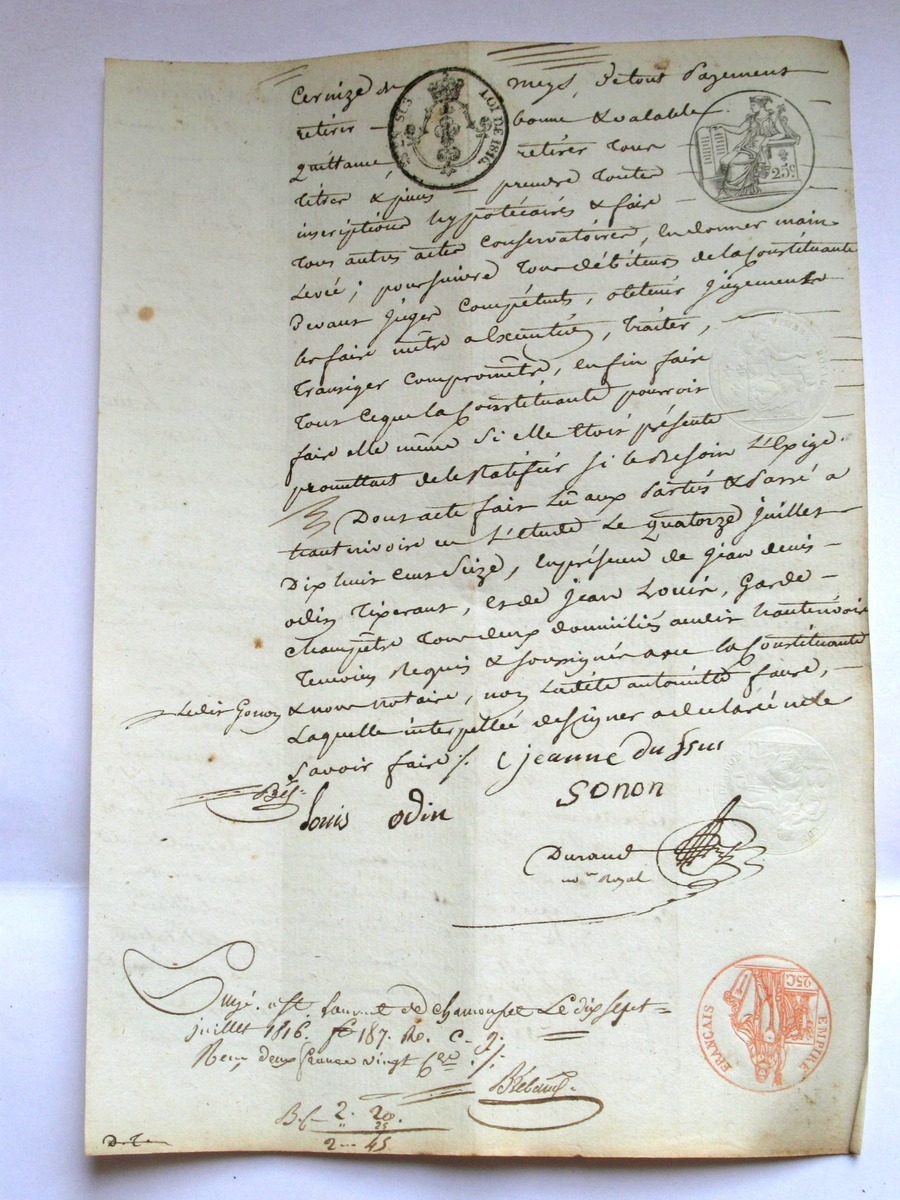 Cerizé de Meys, de tout payement
retirer bonne & valable
quittance retirer tous
titres & pieces prendre toutes
inscriptions hypotécaires & faire
tous autres actes conservatoires, en donner main
Levée ; poursuivre tous débiteurs de la Constituante
devant juges compétents, obtenir jugements
les faire mêtre a Exécution, traiter,
transiger compromêtre, en fin faire
tout ce que la Constituante pourroit
faire elle même si elle Etoit présente
promettant de le Ratifier si le Besoin L'Exige.
Dont acte fait Lû aux Parties & Passé a
hauterivoire en L'étude Le quatorze juillet
Dix huit Cent Seize, En présence de jean denis
odin tixerant, et de jean Louis, garde
champêtre tous deux domiciliés audit hauterivoire
temoins Requis & soussignés avec la Constituante
Ledit Gonon & nous notaire, non Ladite antoinette faure,
Laquelle interpellée de signer a déclaré ne le
Savoir faire ./.
jeanne du ssus
Louis odin Gonon
Durand
no.re Royal
LOI DE 1816.
25c
Engé. a St Laurent de Chamousset Le dix sept
juillet 1816. fo 187. Ro. C. 9.
Recu deux francs vingt c.es ./.
2. 20.
25
2 45
EMPIRE FRANCAIS
25C